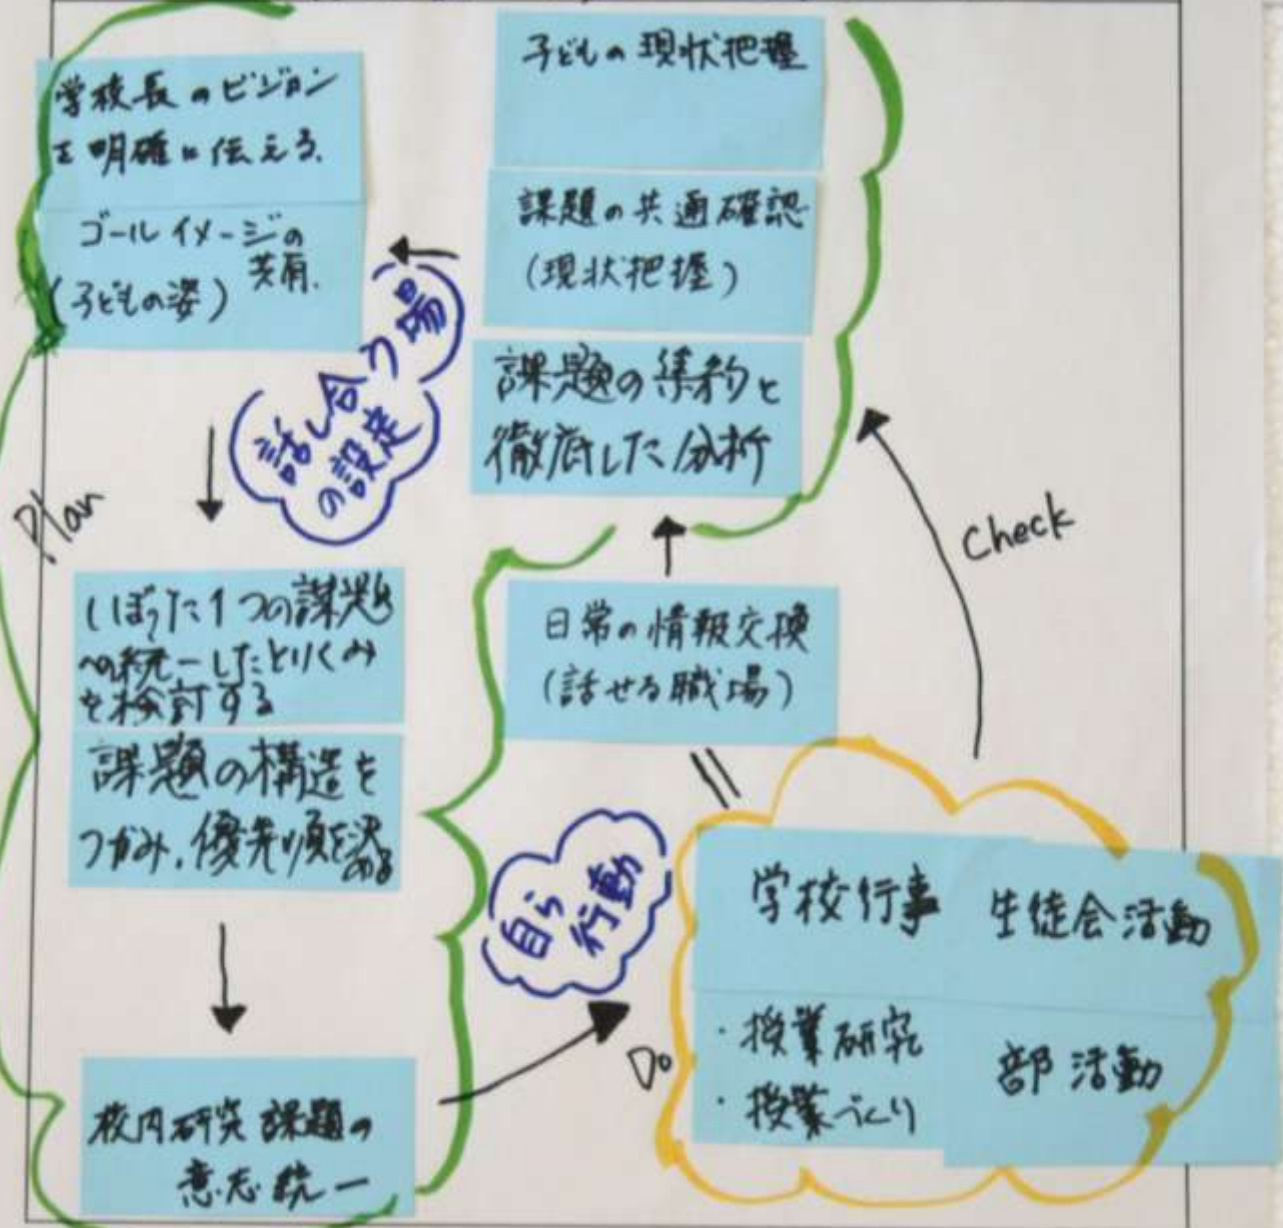 学校長のビジョン
を明確に伝える.
ゴールイメージの
共有.
(子どもの姿)
子どもの現状把握
課題の共通確認
(現状把握)
課題の集約と
徹底した分析
話し合う場
の設定
Plan
Check
しぼった1つの課題
への統一したとりくみ
を検討する
課題の構造を
つかみ、優先順を決
める
日常の情報交換
(話せる職場)
自ら
行動
Do
学校行事
生徒会活動
・授業研究
・授業づくり
部活動
校内研究課題の
意志統一